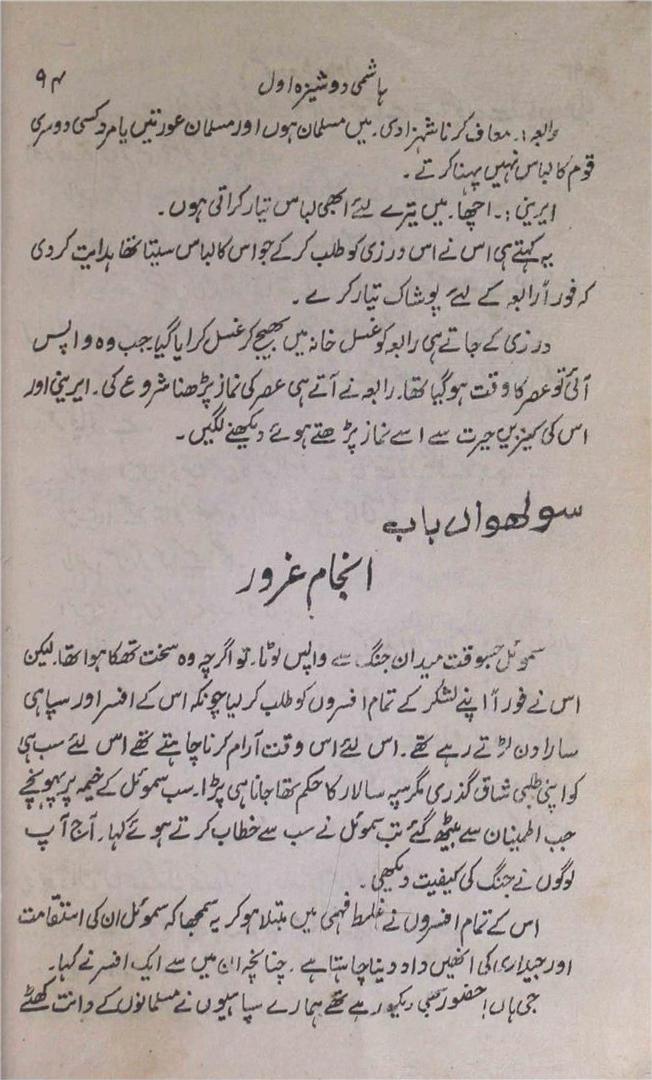 ہاشمی دوشیزہ اول ۹۴
رابعہ:۔ معاف کرنا شہزادی۔ میں مسلمان ہوں اور مسلمان عورتیں یا مرد کسی دوسری
قوم کا لباس نہیں پہنا کرتے۔
ایرینی:۔ اچھا۔ میں تیرے لئے ابھی لباس تیار کراتی ہوں۔
یہ کہتے ہی اس نے اس درزی کو طلب کر کے جو اس کا لباس سیتا تھا ہدایت کر دی
کہ فوراً رابعہ کے لئے پوشاک تیار کرے۔
درزی کے جاتے ہی رابعہ کو غسل خانہ میں بھیج کر غسل کرایا گیا۔ جب وہ واپس
آئی تو عصر کا وقت ہو گیا تھا۔ رابعہ نے آتے ہی عصر کی نماز پڑھنا شروع کی۔ ایرینی اور
اس کی کنیزیں حیرت سے اسے نماز پڑھتے ہوئے دیکھنے لگیں۔
سولھواں باب
انجام غرور
سموئل جسوقت میدان جنگ سے واپس لوٹا۔ تو اگرچہ وہ سخت تھکا ہوا تھا۔ لیکن
اس نے فوراً اپنے لشکر کے تمام افسروں کو طلب کر لیا چونکہ اس کے افسر اور سپاہی
سارا دن لڑتے رہے تھے۔ اس لئے اس وقت آرام کرنا چاہتے تھے اس لئے سب ہی
کو اپنی طلبی شاق گذری مگر سپہ سالار کا حکم تھا جانا ہی پڑا۔ سب سموئل کے خیمہ پر پہونچے
جب اطمینان سے بیٹھ گئے تب سموئل نے سب سے خطاب کرتے ہوئے کہا۔ آج آپ
لوگوں نے جنگ کی کیفیت دیکھی۔
اس کے تمام افسروں نے غلط فہمی میں مبتلا ہو کر یہ سمجھا کہ سموئل ان کی استقامت
اور جیداری کی انھیں داد دینا چاہتا ہے۔ چنانچہ ان میں سے ایک افسر نے کہا۔
جی ہاں! حضور بھی دیکھ رہے تھے ہمارے سپاہیوں نے مسلمانوں کے دانت کھٹے